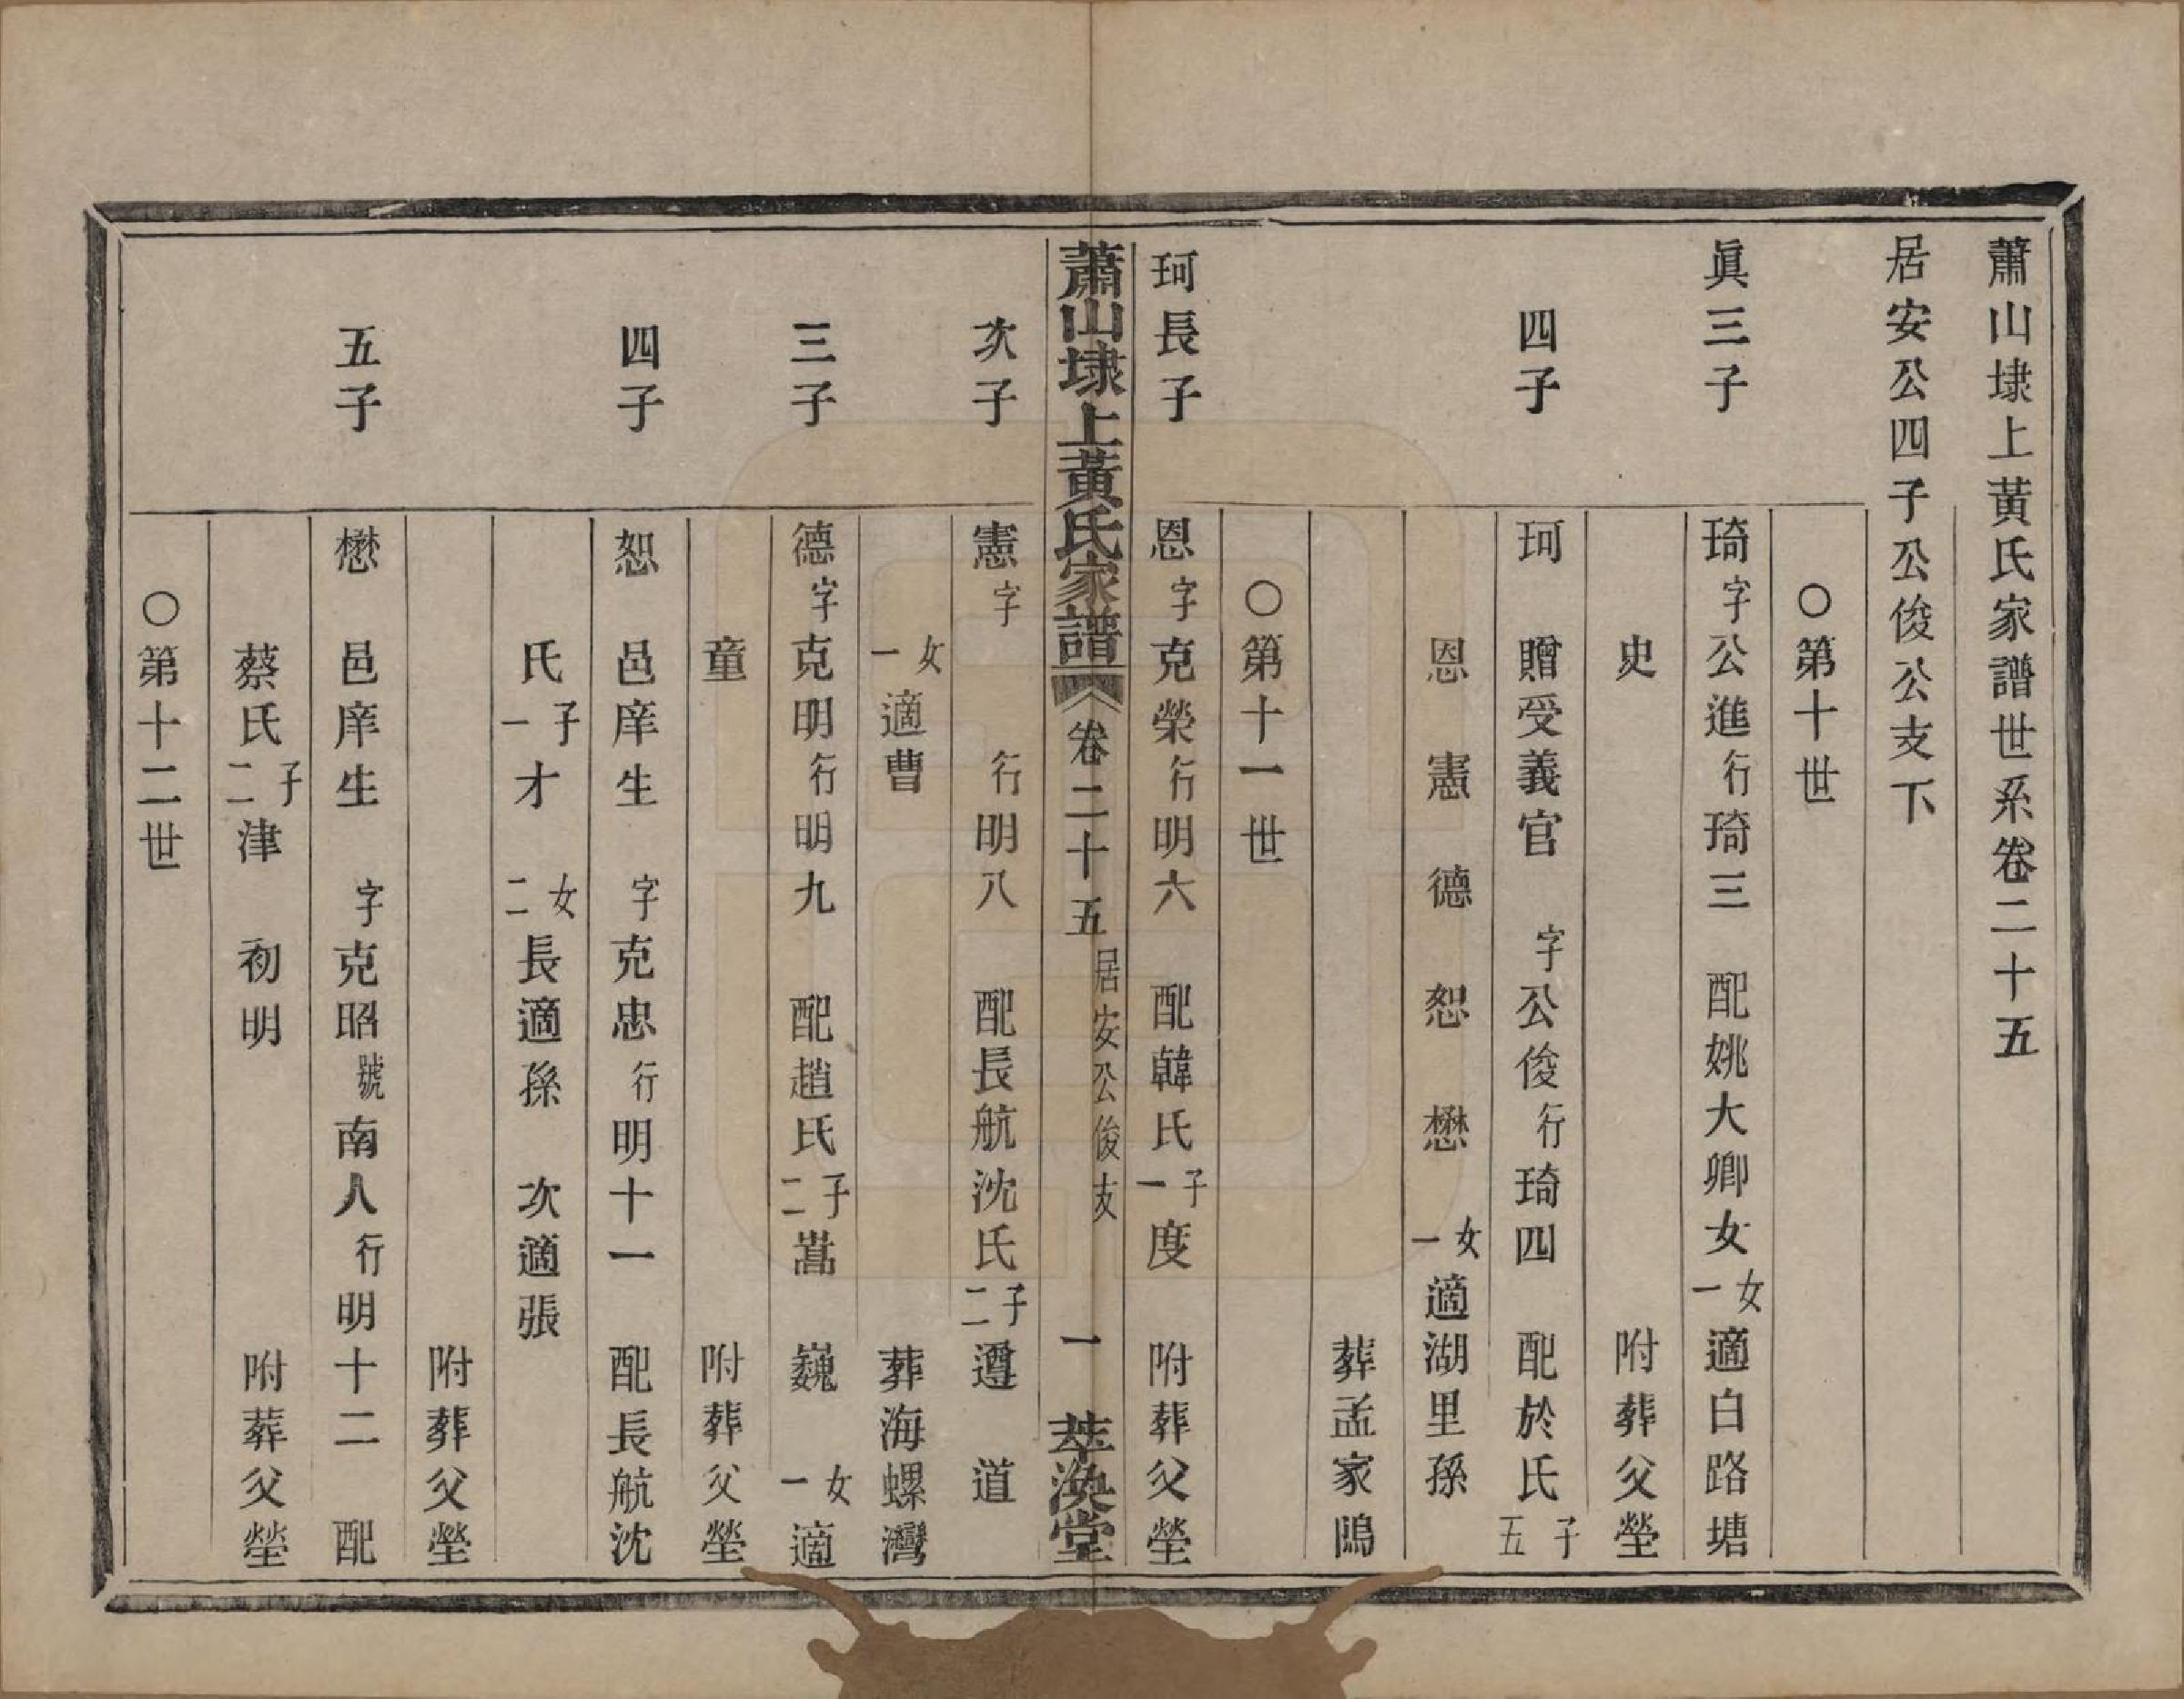 蕭山埭上黃氏家譜世系卷二十五
居安公四子公俊公支下
○第十世
眞三子 琦字公進行琦三 配姚大卿女一女適白路塘
史 附葬父塋
四子 珂 贈受義官 字公俊行琦四 配於氏五子
恩 憲 德 恕 懋 一女適湖里孫
葬孟家隝
○第十一世
珂長子 恩字克榮行明六 配韓氏一子度 附葬父塋
蕭山埭上黃氏家譜 卷二十五 居安公俊支 一 萃渙堂
次子 憲字 行明八 配長航沈氏二子遵 道
一女適曹 葬海螺灣
三子 德字克明行明九 配趙氏二子嵩 巍 一女適
童 附葬父塋
四子 恕 邑庠生 字克忠行明十一 配長航沈
氏一子才 二女長適孫 次適張
附葬父塋
五子 懋 邑庠生 字克昭號南人行明十二 配
蔡氏二子津 初明 附葬父塋
○第十二世